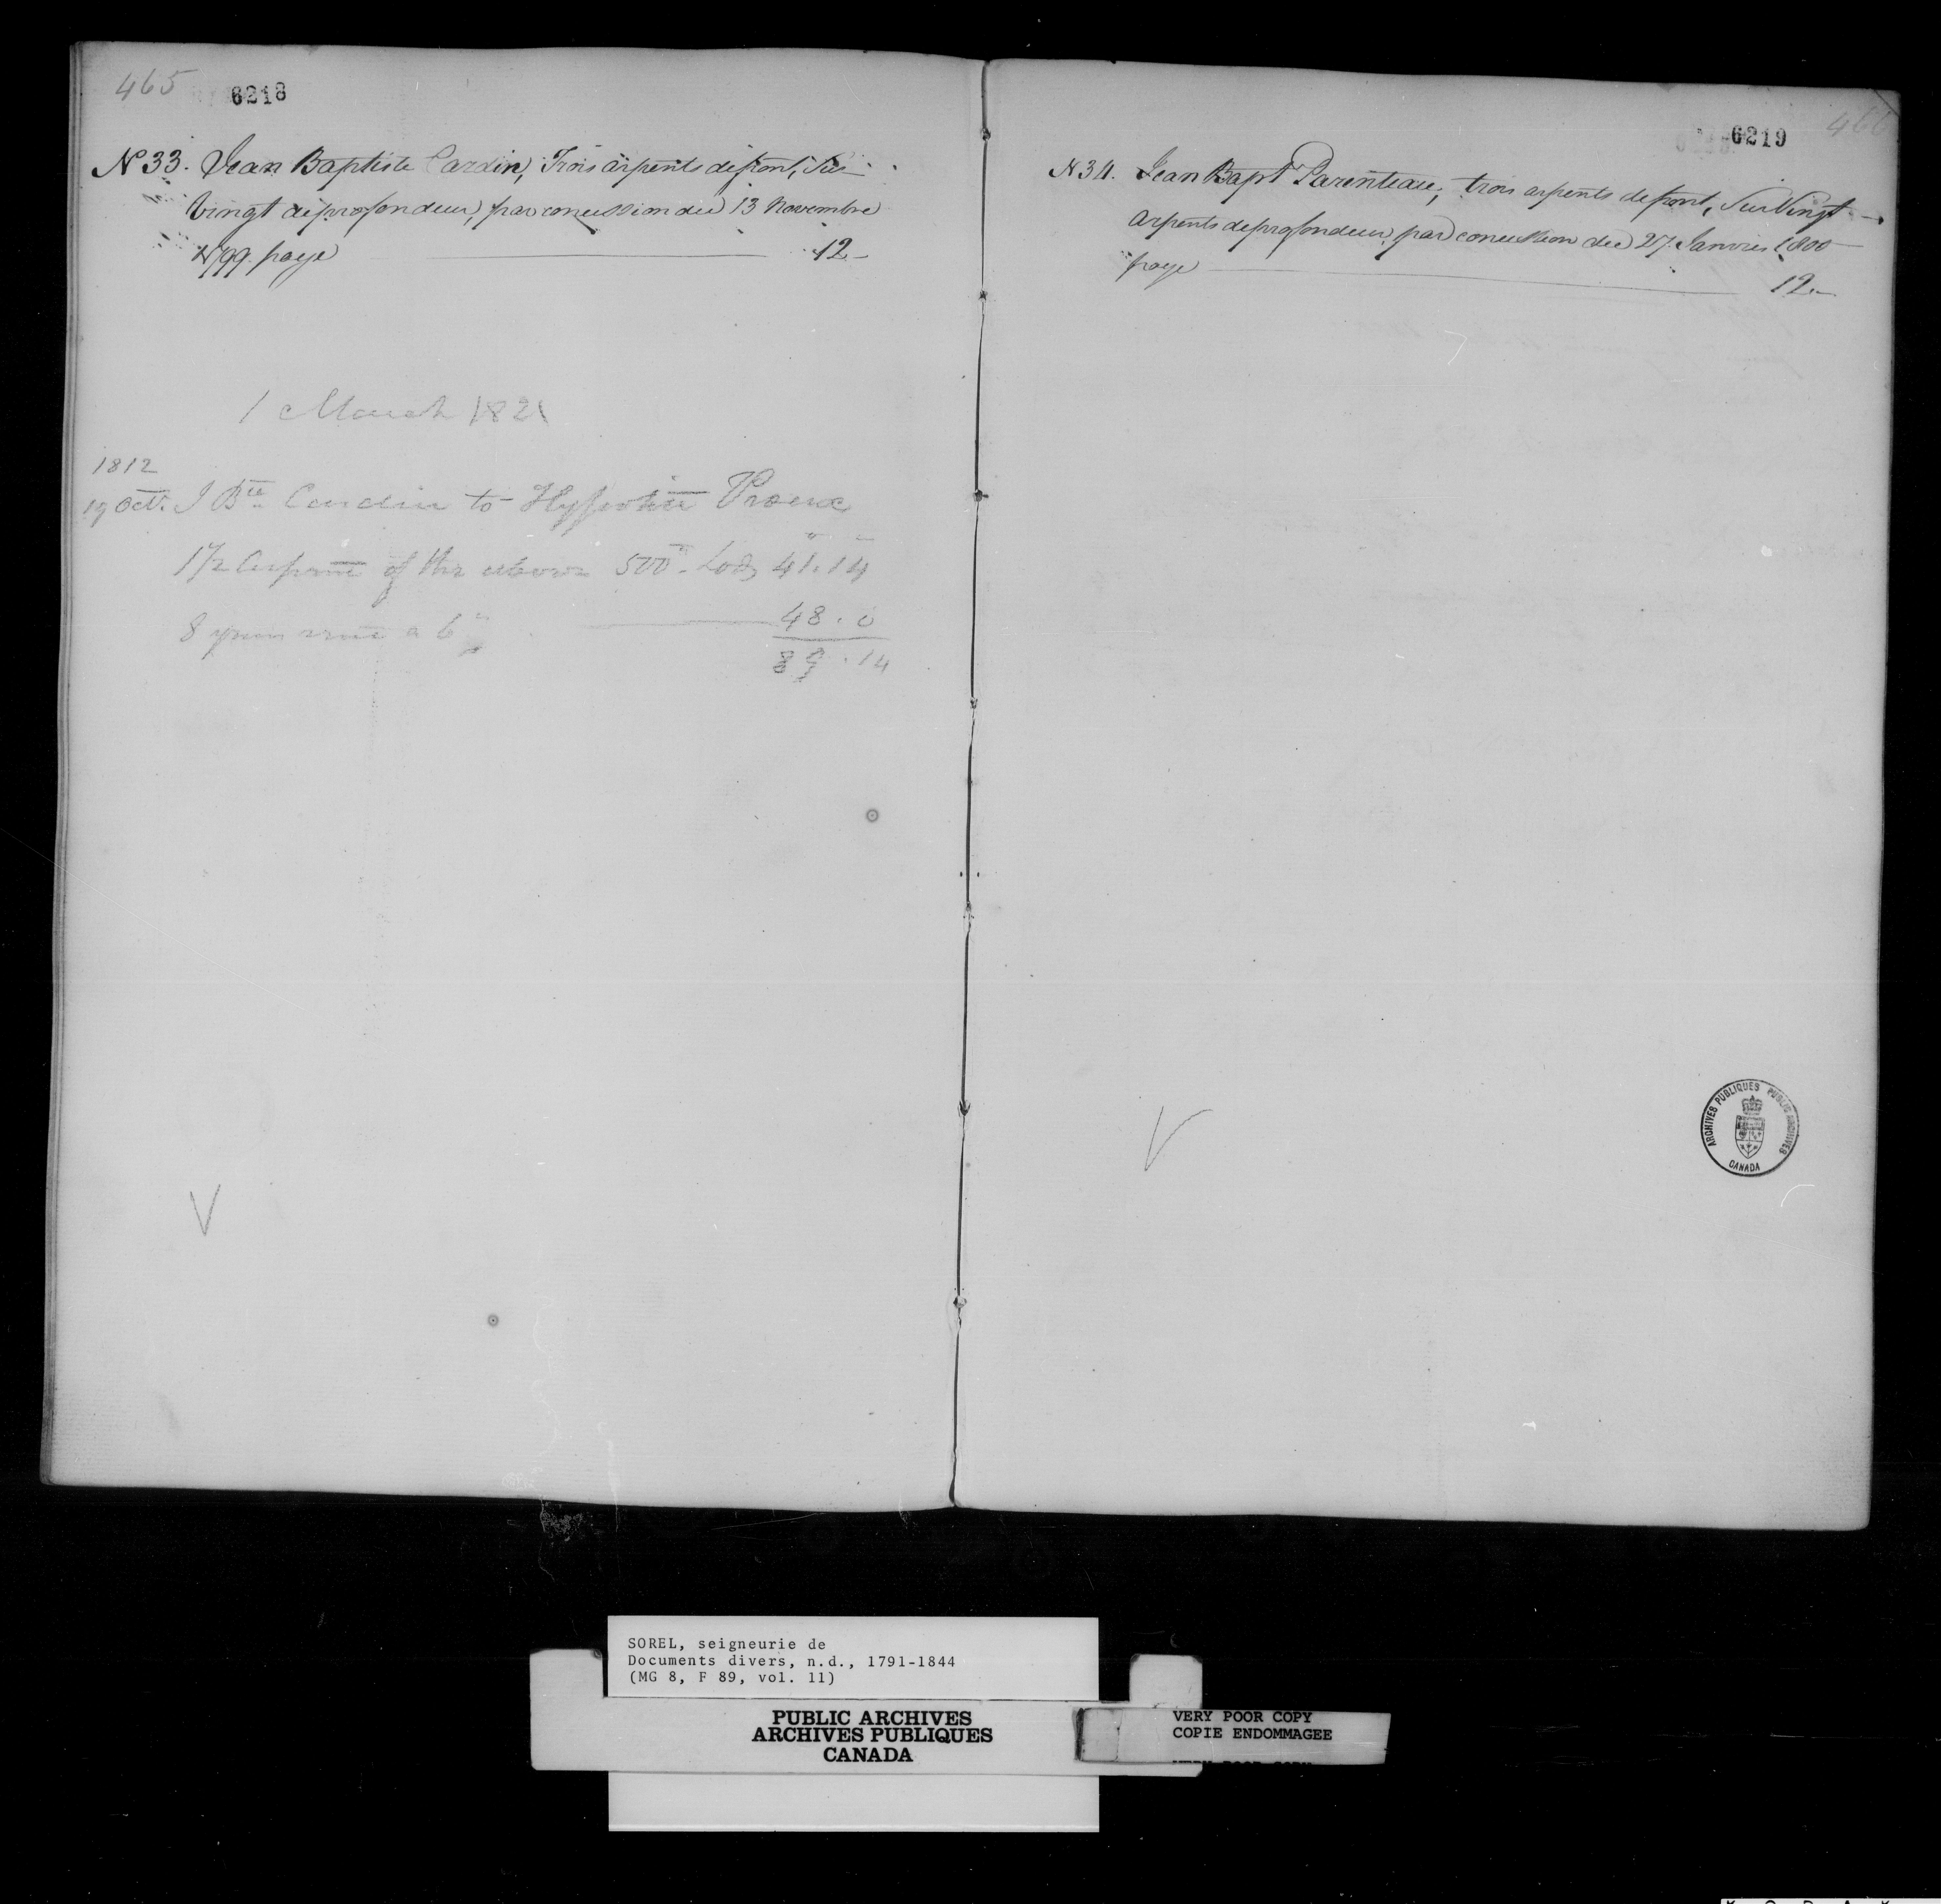 465 6218
N 33. Jean Baptiste Cardin, Trois arpents de front, Sur
Vingt de profondeur, par concession du 13 Novembre
1799. paye 12 –
1 March 1821
1812
19 Oct. J Bte Cardin to Hypolite Proux
1 1/2 Arpent of the above 500 - Lods 41.14
8 years rente a 6 48.0
89.14
V
6219
N 34. Jean Bapt Parenteau, trois arpents de front, Sur Vingt
Arpents de profondeur, par concession du 27. Janvier 1800
paye 12.–
V
ARCHIVES PUBLIQUES PUBLIC ARCHIVES
CANADA
SOREL, seigneurie de
Documents divers, n.d., 1791-1844
(MG 8, F 89, vol. 11)
PUBLIC ARCHIVES
ARCHIVES PUBLIQUES
CANADA
VERY POOR COPY
COPIE ENDOMMAGEE